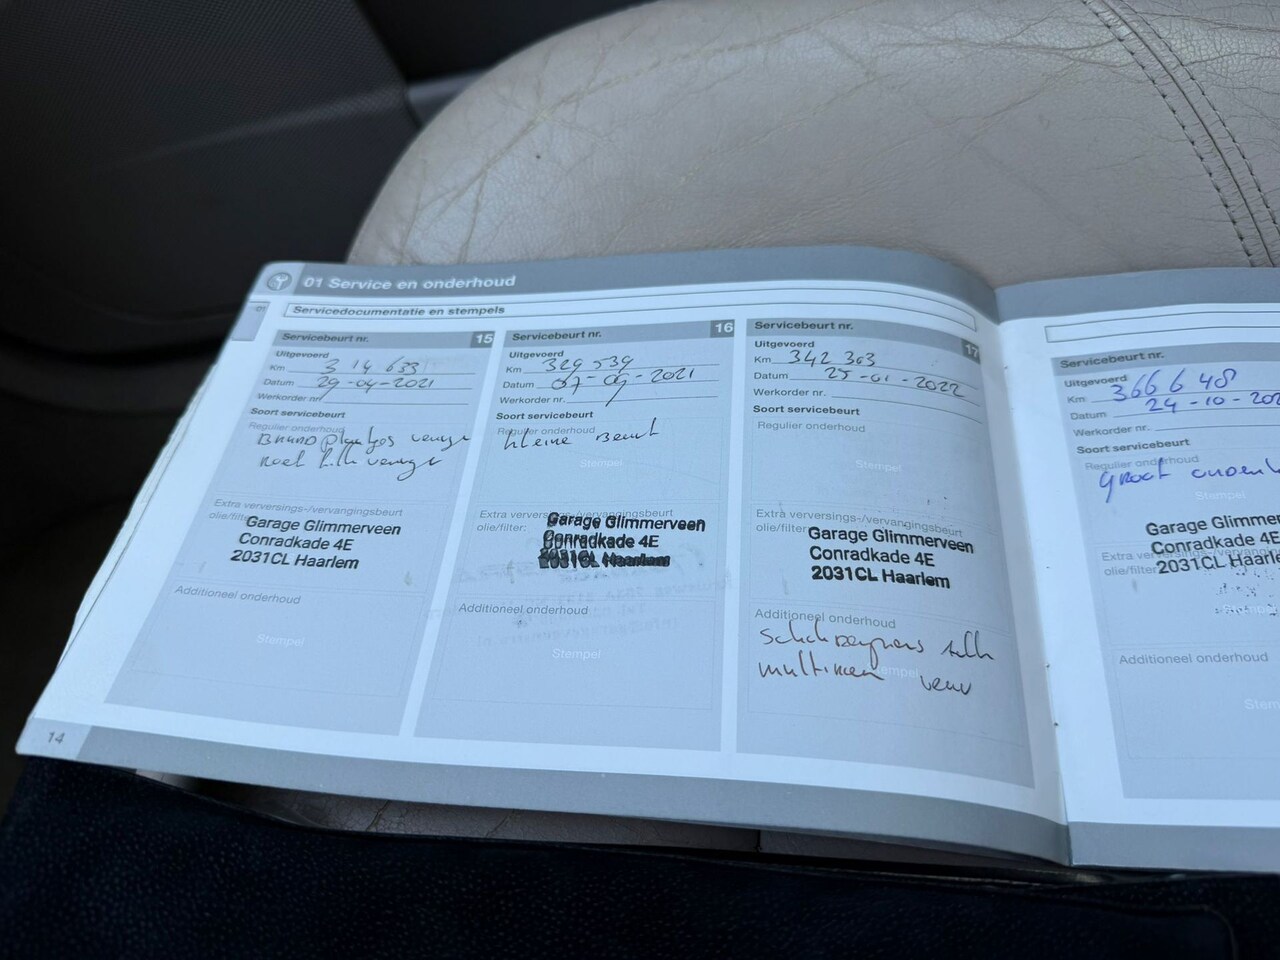 01 Service en onderhoud
Servicedocumentatie en stempels
Servicebeurt nr. 15
Uitgevoerd
Km 314 633
Datum 29-04-2021
Werkorder nr.
Soort servicebeurt
Regulier onderhoud
Extra verversings-/vervangingsbeurt
olie/filter:
Garage Glimmerveen
Conradkade 4E
2031CL Haarlem
Additioneel onderhoud
Stempel
14
Servicebeurt nr. 16
Uitgevoerd
Km 329 539
Datum 07-09-2021
Werkorder nr.
Soort servicebeurt
Regulier onderhoud
kleine Beurt
Stempel
Extra verversings-/vervangingsbeurt
olie/filter:
Garage Glimmerveen
Conradkade 4E
2031CL Haarlem
Additioneel onderhoud
Stempel
Servicebeurt nr. 17
Uitgevoerd
Km 342 303
Datum 25-01-2022
Werkorder nr.
Soort servicebeurt
Regulier onderhoud
Stempel
Extra verversings-/vervangingsbeurt
olie/filter:
Garage Glimmerveen
Conradkade 4E
2031CL Haarlem
Additioneel onderhoud
multiriem
Servicebeurt nr.
Uitgevoerd
Km 366 648
Datum 24-10-202
Werkorder nr.
Soort servicebeurt
Regulier onderhoud
Groot
Stempel
Garage Glimmer
Conradkade 4E
2031CL Haarle
Extra
olie/filter
Additioneel onderhoud
Stem